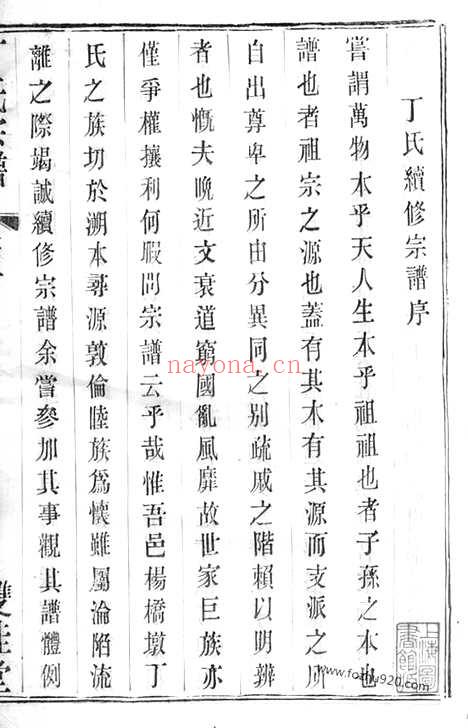 丁氏續修宗譜序
嘗謂萬物本乎天人生本乎祖祖也者子孫之本也
譜也者祖宗之源也蓋有其本有其源而支派之所
自出尊卑之所由分異同之别疏戚之階賴以明辨
者也慨夫晩近文衰道窮國亂風靡故世家巨族亦
僅爭權攘利何暇問宗譜云乎哉惟吾邑楊橋墩丁
氏之族切於溯本尋源敦倫陸族爲懷雖屬淪陷流
離之際竭誠續修宗譜余嘗參加其事觀其譜體例
nayona.cn
www.fozhy920.com